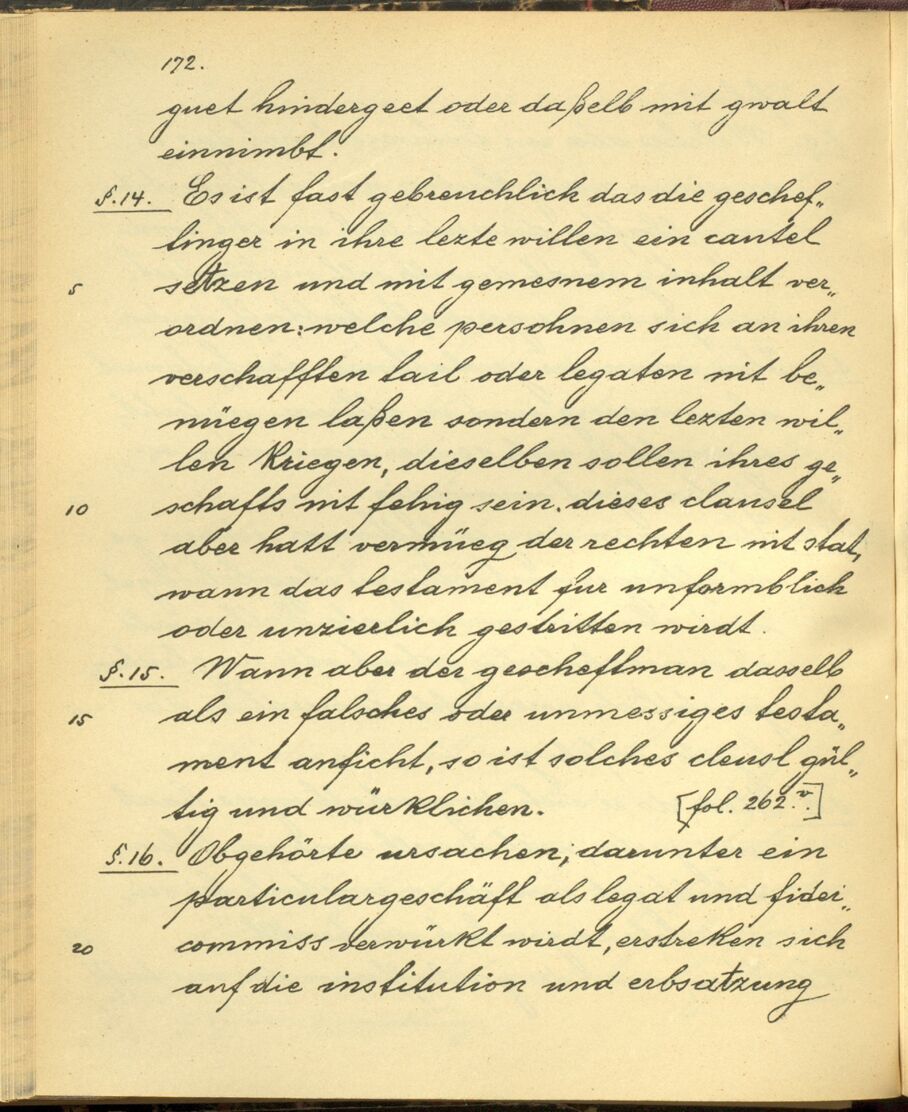 172.
guet hindergeet oder daßelb mit gwalt
einnimbt.
§.14. Es ist fast gebreuchlich das die geschef„
tinger in ihre lezte willen ein cautel
5 setzen und mit gemesnem inhalt ver„
ordnen: welche persohnen sich an ihren
verschafften tail oder legaten nit be„
nüegen laßen sondern den lezten wil„
len kriegen, dieselben sollen ihres ge„
10 schäfts nit fehig sein. dieses clausel
aber hatt vermüeg der rechten nit stat,
wann das testament für unformblich
oder unzierlich gestritten wirdt.
§.15. Wann aber der gescheftman dasselb
15 als ein falsches oder unmessiges testa„
ment anficht, so ist solches cleusl gül„
tig und würklichen. [fol. 262.v.]
§.16. Obgehörte ursachen, darunter ein
particulargeschäft als legat und fidei„
20 commiss verwürkt wirdt, erstreken sich
auf die institution und erbsatzung